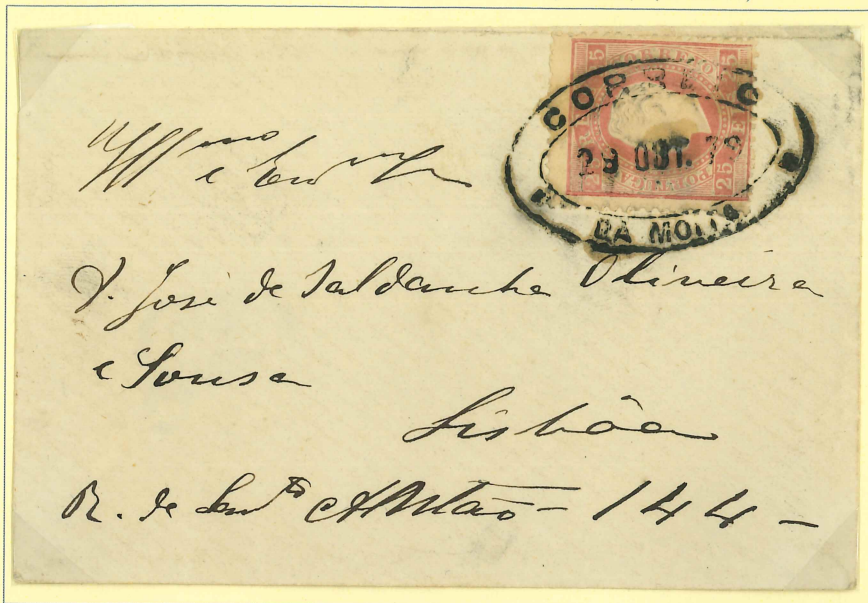 25 CORREIO 25
CORREIO
29 OUT. 79
25 25
DA MOITA
Illmo e Exmo Sr
D. José de Saldanha Oliveira
e Sousa
Lisbôa
R. de Santo Antão - 144 -